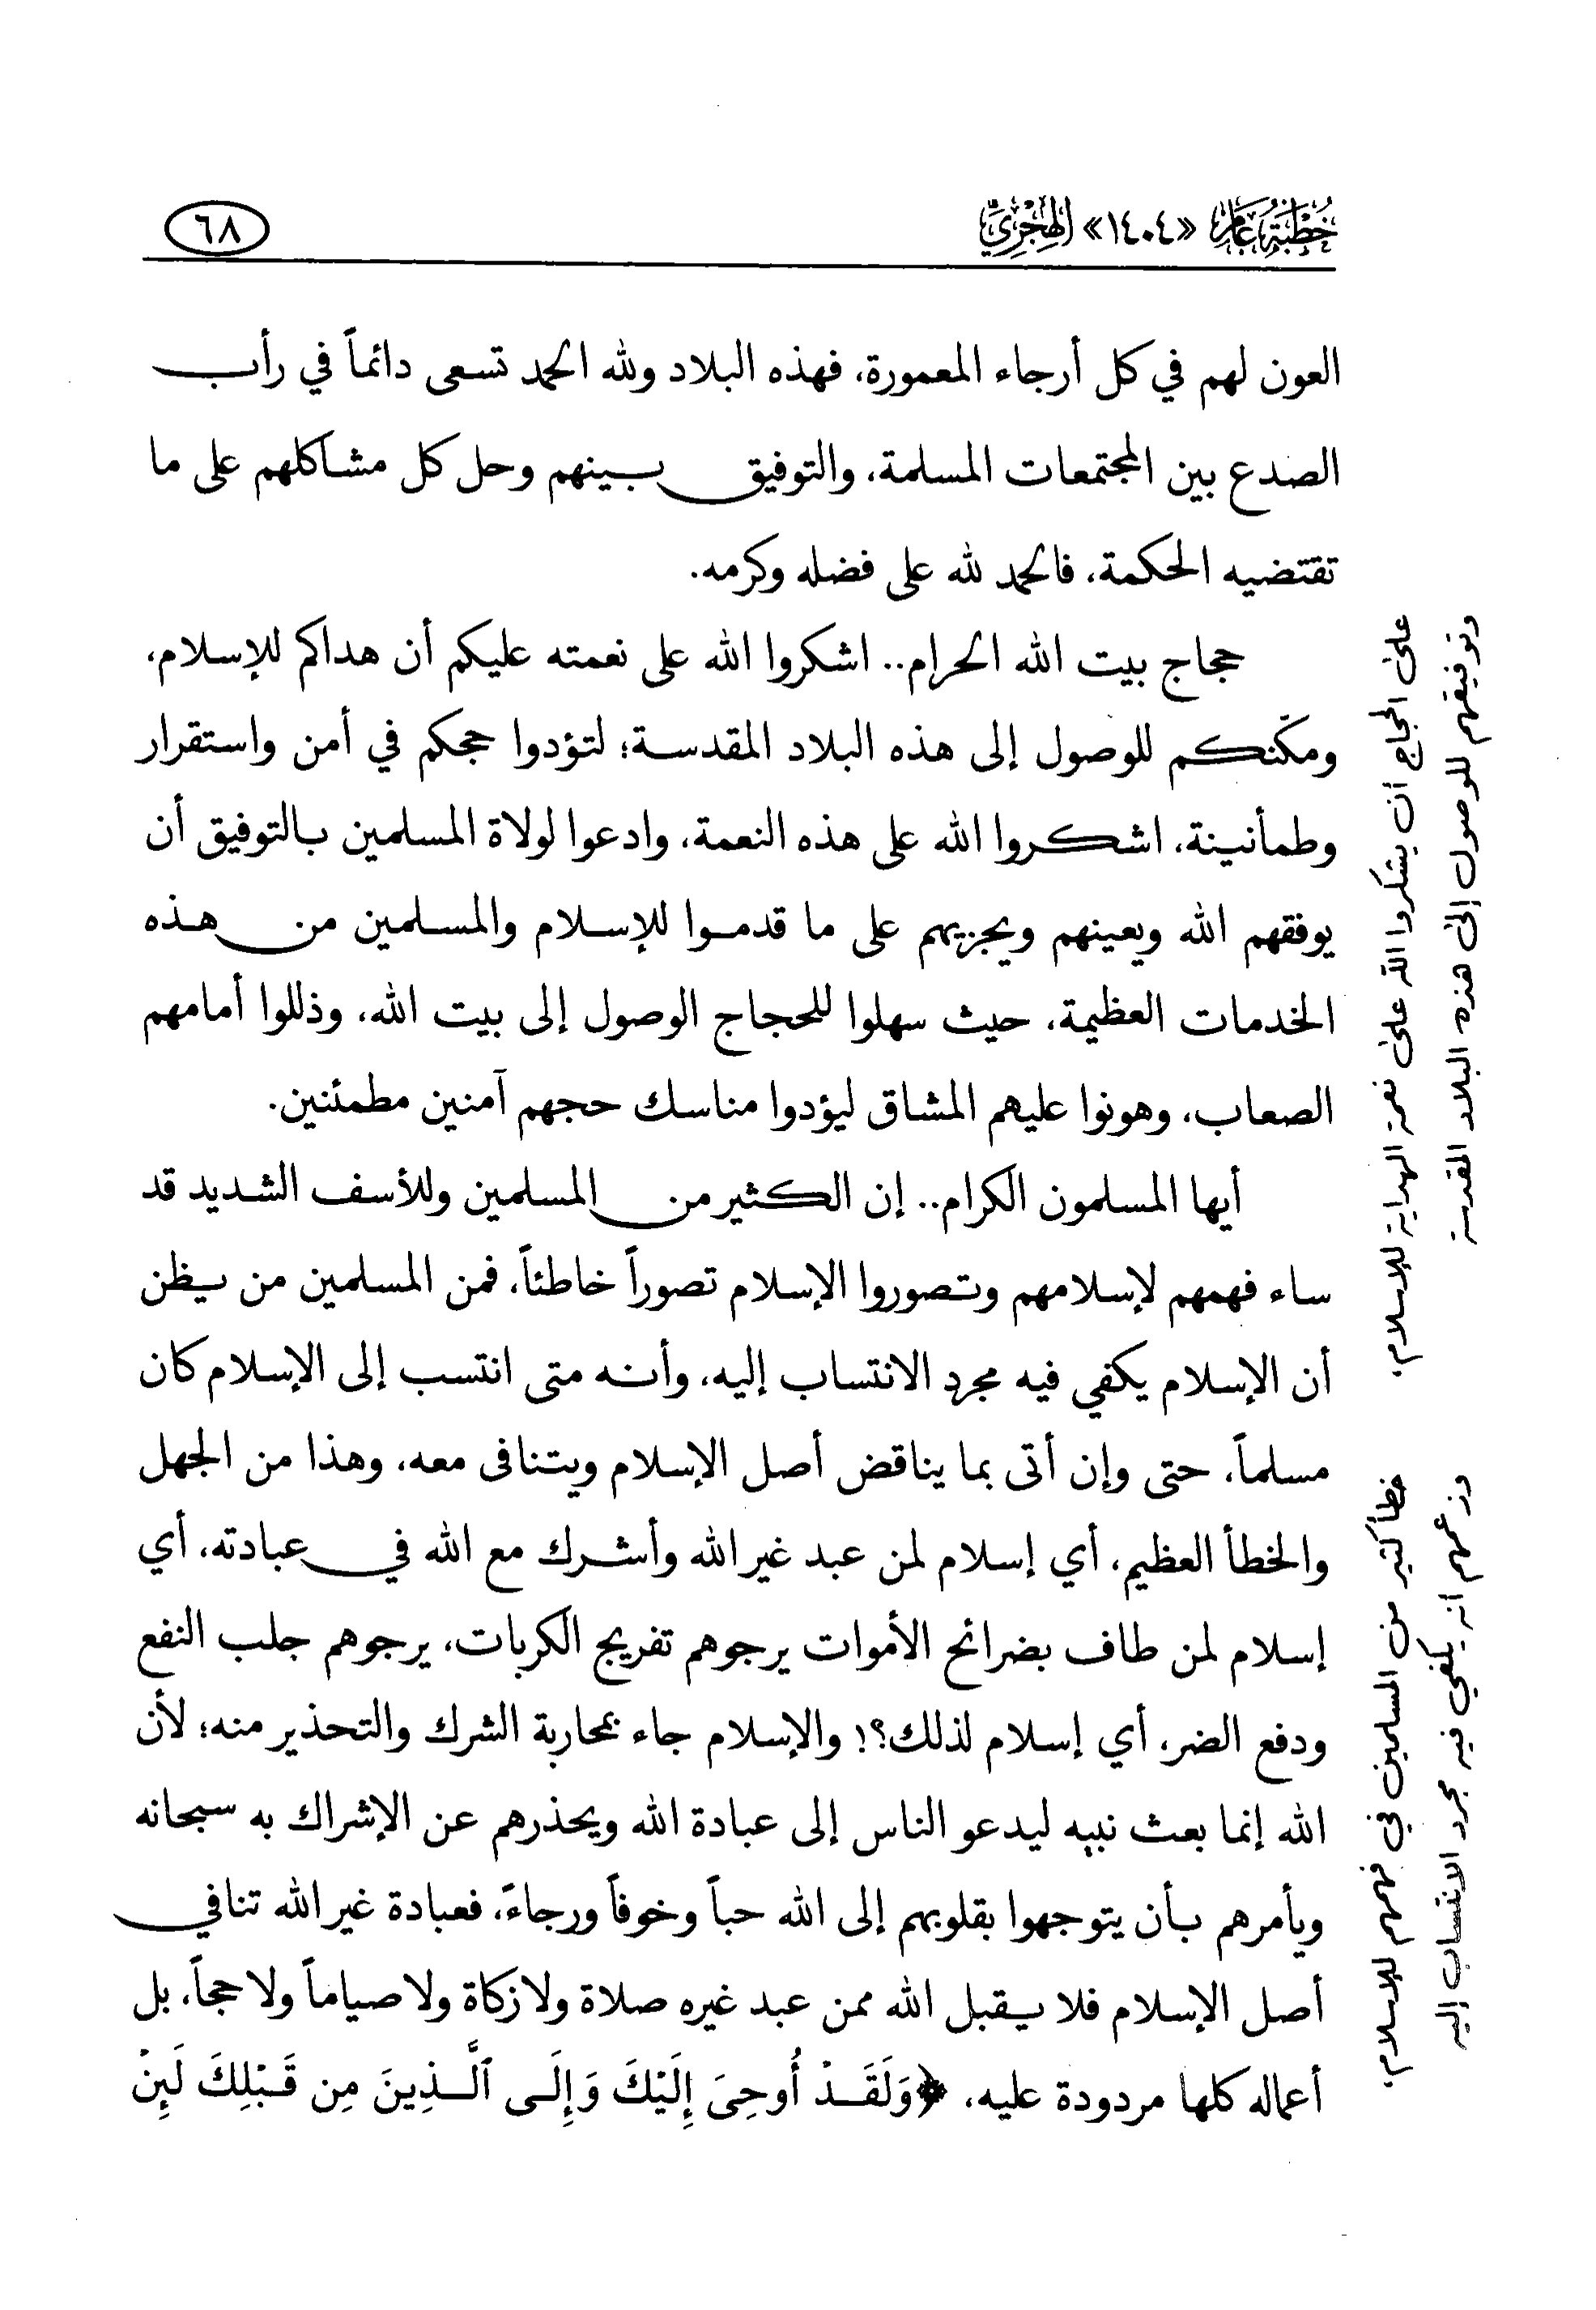 خُطْبَةُ عَامِ «١٤٠٤» الهِجْرِيِّ
٦٨
العون لهم في كل أرجاء المعمورة، فهذه البلاد ولله الحمد تسعى دائماً في رأب
الصدع بين المجتمعات المسلمة، والتوفيق بينهم وحل كل مشاكلهم على ما
تقتضيه الحكمة، فالحمد لله على فضله وكرمه.
حجاج بيت الله الحرام.. اشكروا الله على نعمته عليكم أن هداكم للإسلام،
ومكّنكم للوصول إلى هذه البلاد المقدسة؛ لتؤدوا حجكم في أمن واستقرار
وطمأنينة، اشكروا الله على هذه النعمة، وادعوا لولاة المسلمين بالتوفيق أن
يوفقهم الله ويعينهم ويجزيهم على ما قدموا للإسلام والمسلمين من هذه
الخدمات العظيمة، حيث سهلوا للحجاج الوصول إلى بيت الله، وذللوا أمامهم
الصعاب، وهونوا عليهم المشاق ليؤدوا مناسك حجهم آمنين مطمئنين.
أيها المسلمون الكرام.. إن الكثير من المسلمين وللأسف الشديد قد
ساء فهمهم لإسلامهم وتصوروا الإسلام تصوراً خاطئاً، فمن المسلمين من يظن
أن الإسلام يكفي فيه مجرد الانتساب إليه، وأنه متى انتسب إلى الإسلام كان
مسلماً، حتى وإن أتى بما يناقض أصل الإسلام ويتنافى معه، وهذا من الجهل
والخطأ العظيم، أي إسلام لمن عبد غير الله وأشرك مع الله في عبادته، أي
إسلام لمن طاف بضرائح الأموات يرجوهم تفريج الكربات، يرجوهم جلب النفع
ودفع الضر، أي إسلام لذلك؟! والإسلام جاء بمحاربة الشرك والتحذير منه؛ لأن
الله إنما بعث نبيه ليدعو الناس إلى عبادة الله ويحذرهم عن الإشراك به سبحانه
ويأمرهم بأن يتوجهوا بقلوبهم إلى الله حباً وخوفاً ورجاءً، فعبادة غير الله تنافي
أصل الإسلام فلا يقبل الله ممن عبد غيره صلاة ولا زكاة ولا صياماً ولا حجاً، بل
أعماله كلها مردودة عليه، ﴿وَلَقَدْ أُوحِيَ إِلَيْكَ وَإِلَى ٱلَّذِينَ مِن قَبْلِكَ لَئِنْ
على الحجاج أن يشكروا الله على نعمة الهداية للإسلام،
وتوفيقهم للوصول إلى هذه البلاد المقدسة
خطأ كثير من المسلمين في فهمهم للإسلام،
وزعمهم أنه يكفي فيه مجرد الانتساب إليه